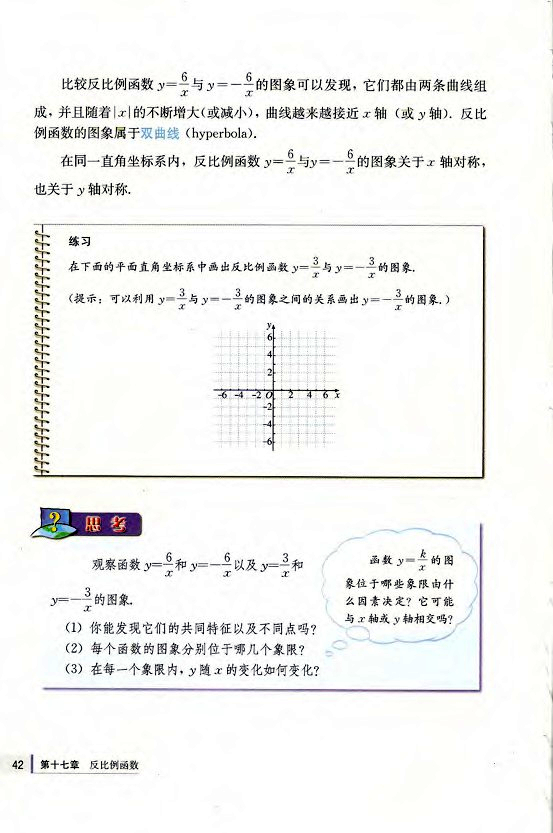 比较反比例函数 y=6/x 与 y=-6/x 的图象可以发现，它们都由两条曲线组
成，并且随着|x|的不断增大(或减小)，曲线越来越接近 x 轴（或 y 轴）. 反比
例函数的图象属于双曲线（hyperbola）.
在同一直角坐标系内，反比例函数 y=6/x 与y=-6/x 的图象关于 x 轴对称，
也关于 y 轴对称.
练习
在下面的平面直角坐标系中画出反比例函数 y=3/x 与 y=-3/x 的图象.
(提示：可以利用 y=3/x 与 y=-3/x 的图象之间的关系画出 y=-3/x 的图象.)
y
6
4
2
-6 -4 -2 O 2 4 6 x
-2
-4
-6
?
思考
观察函数 y=6/x 和 y=-6/x 以及 y=3/x 和
y=-3/x 的图象.
(1) 你能发现它们的共同特征以及不同点吗?
(2) 每个函数的图象分别位于哪几个象限?
(3) 在每一个象限内，y 随 x 的变化如何变化?
函数 y=k/x 的图
象位于哪些象限由什
么因素决定? 它可能
与 x 轴或 y 轴相交吗?
42 第十七章 反比例函数